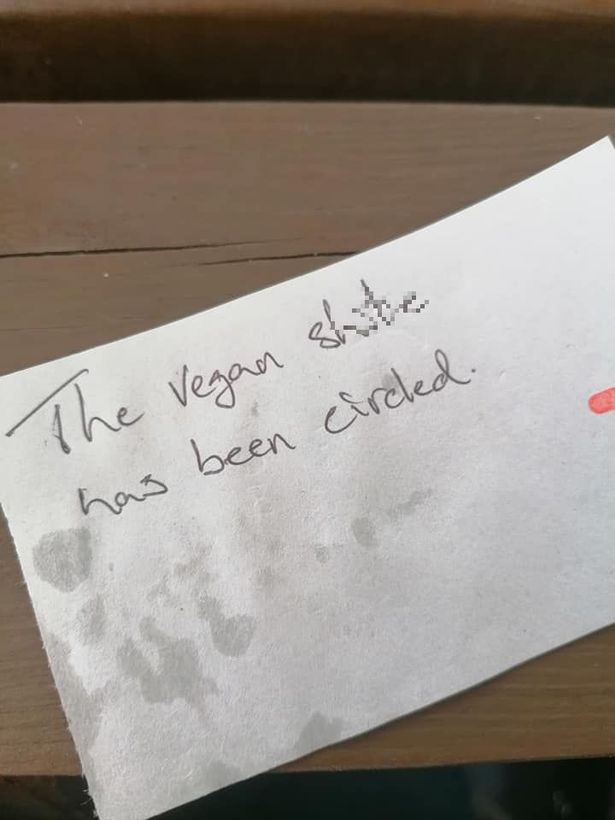 The vegan
has been circled.